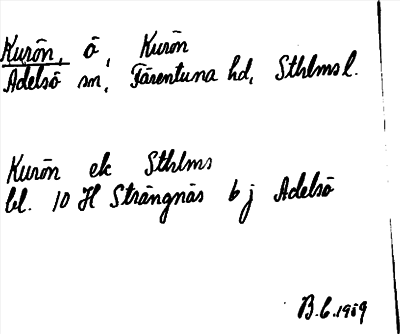 Kurön, ö, Kurön
Adelsö sn, Färentuna hd, Sthlms l.
Kurön ek Sthlms
bl. 10 H Strängnäs b j Adelsö
B.C. 1969